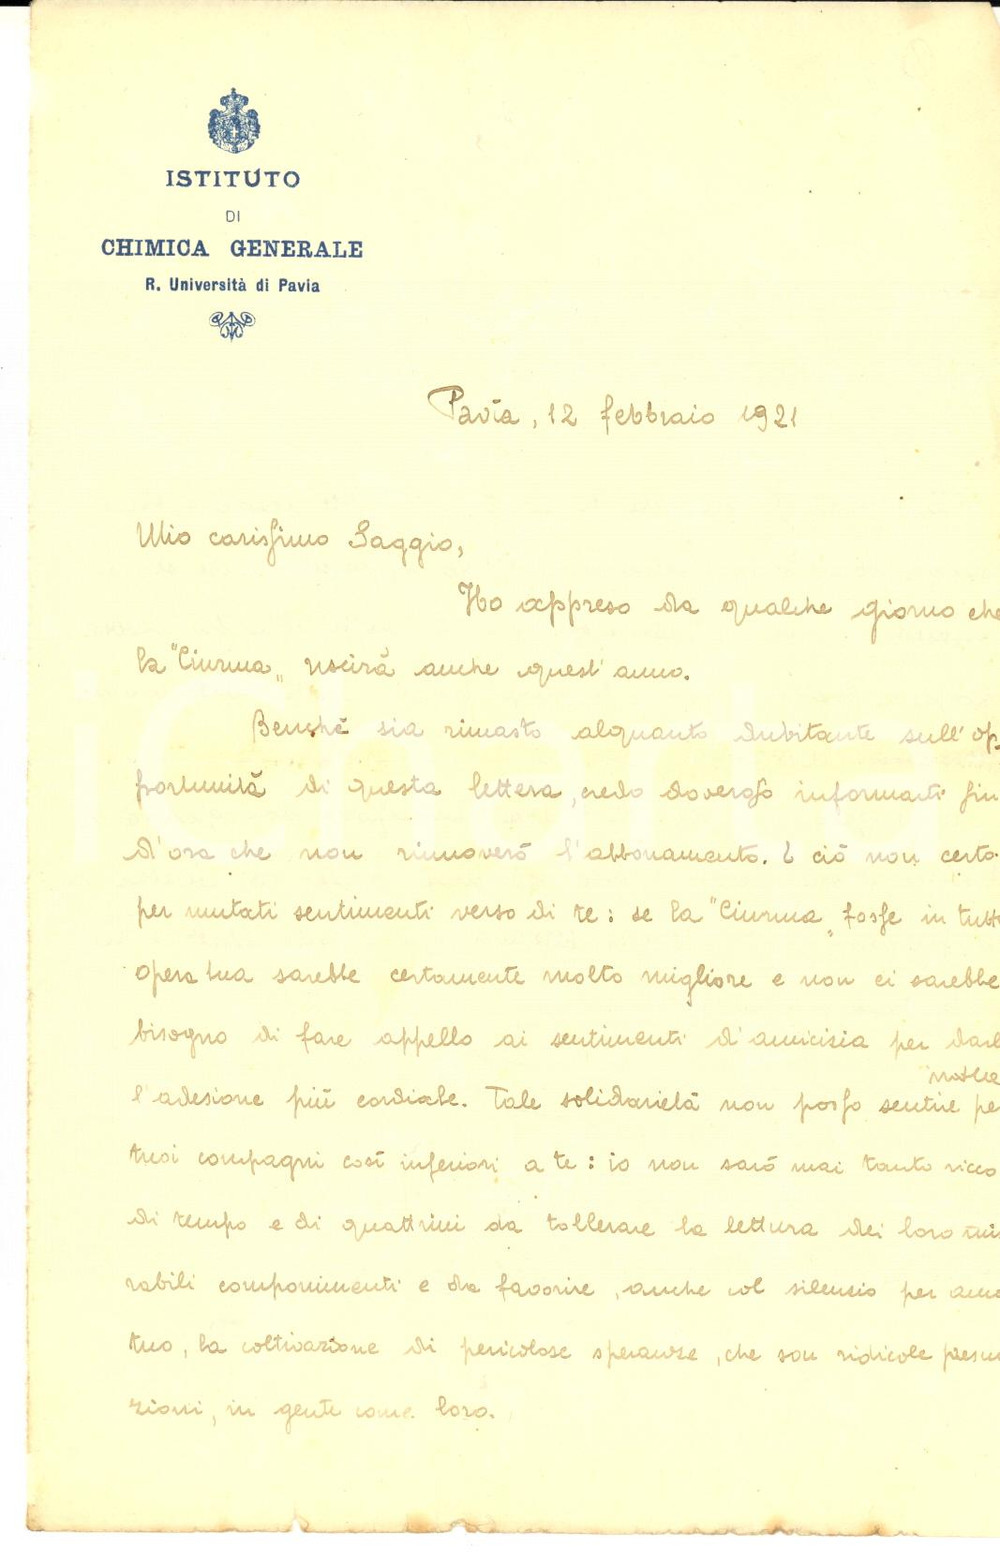 ISTITUTO
DI
CHIMICA GENERALE
R. Università di Pavia
Pavia, 12 febbraio 1921
Mio carissimo Saggio,
Ho appreso da qualche giorno che
la "Ciurma„ uscirà anche quest'anno.
Benchè sia rimasto alquanto dubitante sull'op-
portunità di questa lettera, credo doverso informarti fin
d'ora che non rinnoverò l'abbonamento. E ciò non certo
per mutati sentimenti verso di te: se la "Ciurma„ fosse in tutto
opera tua sarebbe certamente molto migliore e non ci sarebbe
bisogno di fare appello ai sentimenti d'amicizia per darl
l'adesione più cordiale. Tale solidarietà non posso sentire pe
tuoi compagni così inferiori a te: io non sarò mai tanto ricco
di tempo e di quattrini da tollerare la lettura dei loro mi
rabili componimenti e da favorire, anche col silenzio per amo
tuo, la coltivazione di pericolose speranze, che son ridicole presun
zioni, in gente come loro.